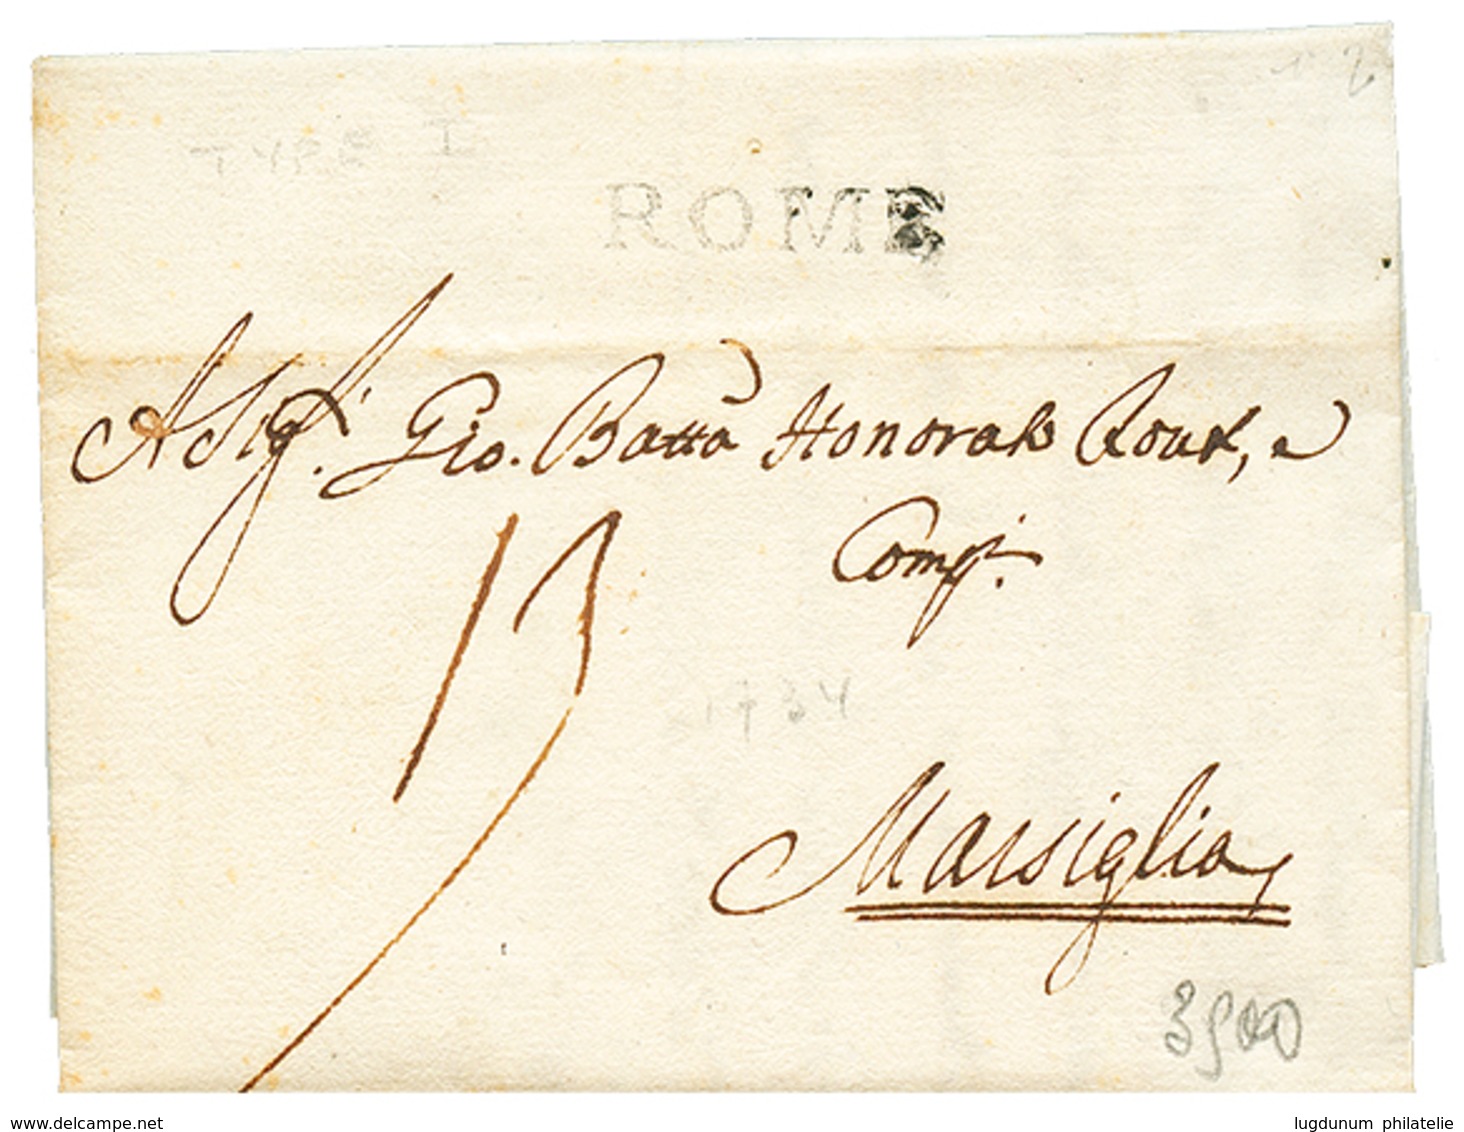 TYPE I
ROME
A Sig.ri Gio. Batta Honorato Roux, e
Comp.
13
1734
Marsiglia
3500
delcampe.net
lugdunum philatelie